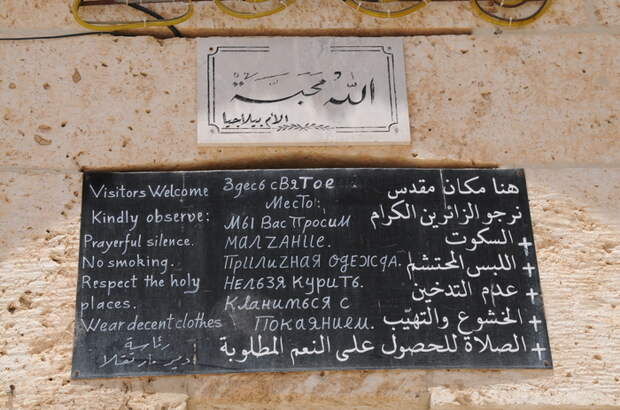 الله محبة
الأم بيلاجيا
Visitors Welcome
Kindly observe:
Prayerful silence.
No smoking.
Respect the holy
places.
Wear decent clothes
Здесь святое
место!
Мы Вас просим
малчание.
Приличная одежда.
Нельзя курить.
Кланиться с
Покаянием.
هنا مكان مقدس
نرجو الزائرين الكرام
+ السكوت
+ اللبس المحتشم
+ عدم التدخين
+ الخشوع والتهيّب
+ الصلاة للحصول على النعم المطلوبة
رئاسة
دير مار تقلا